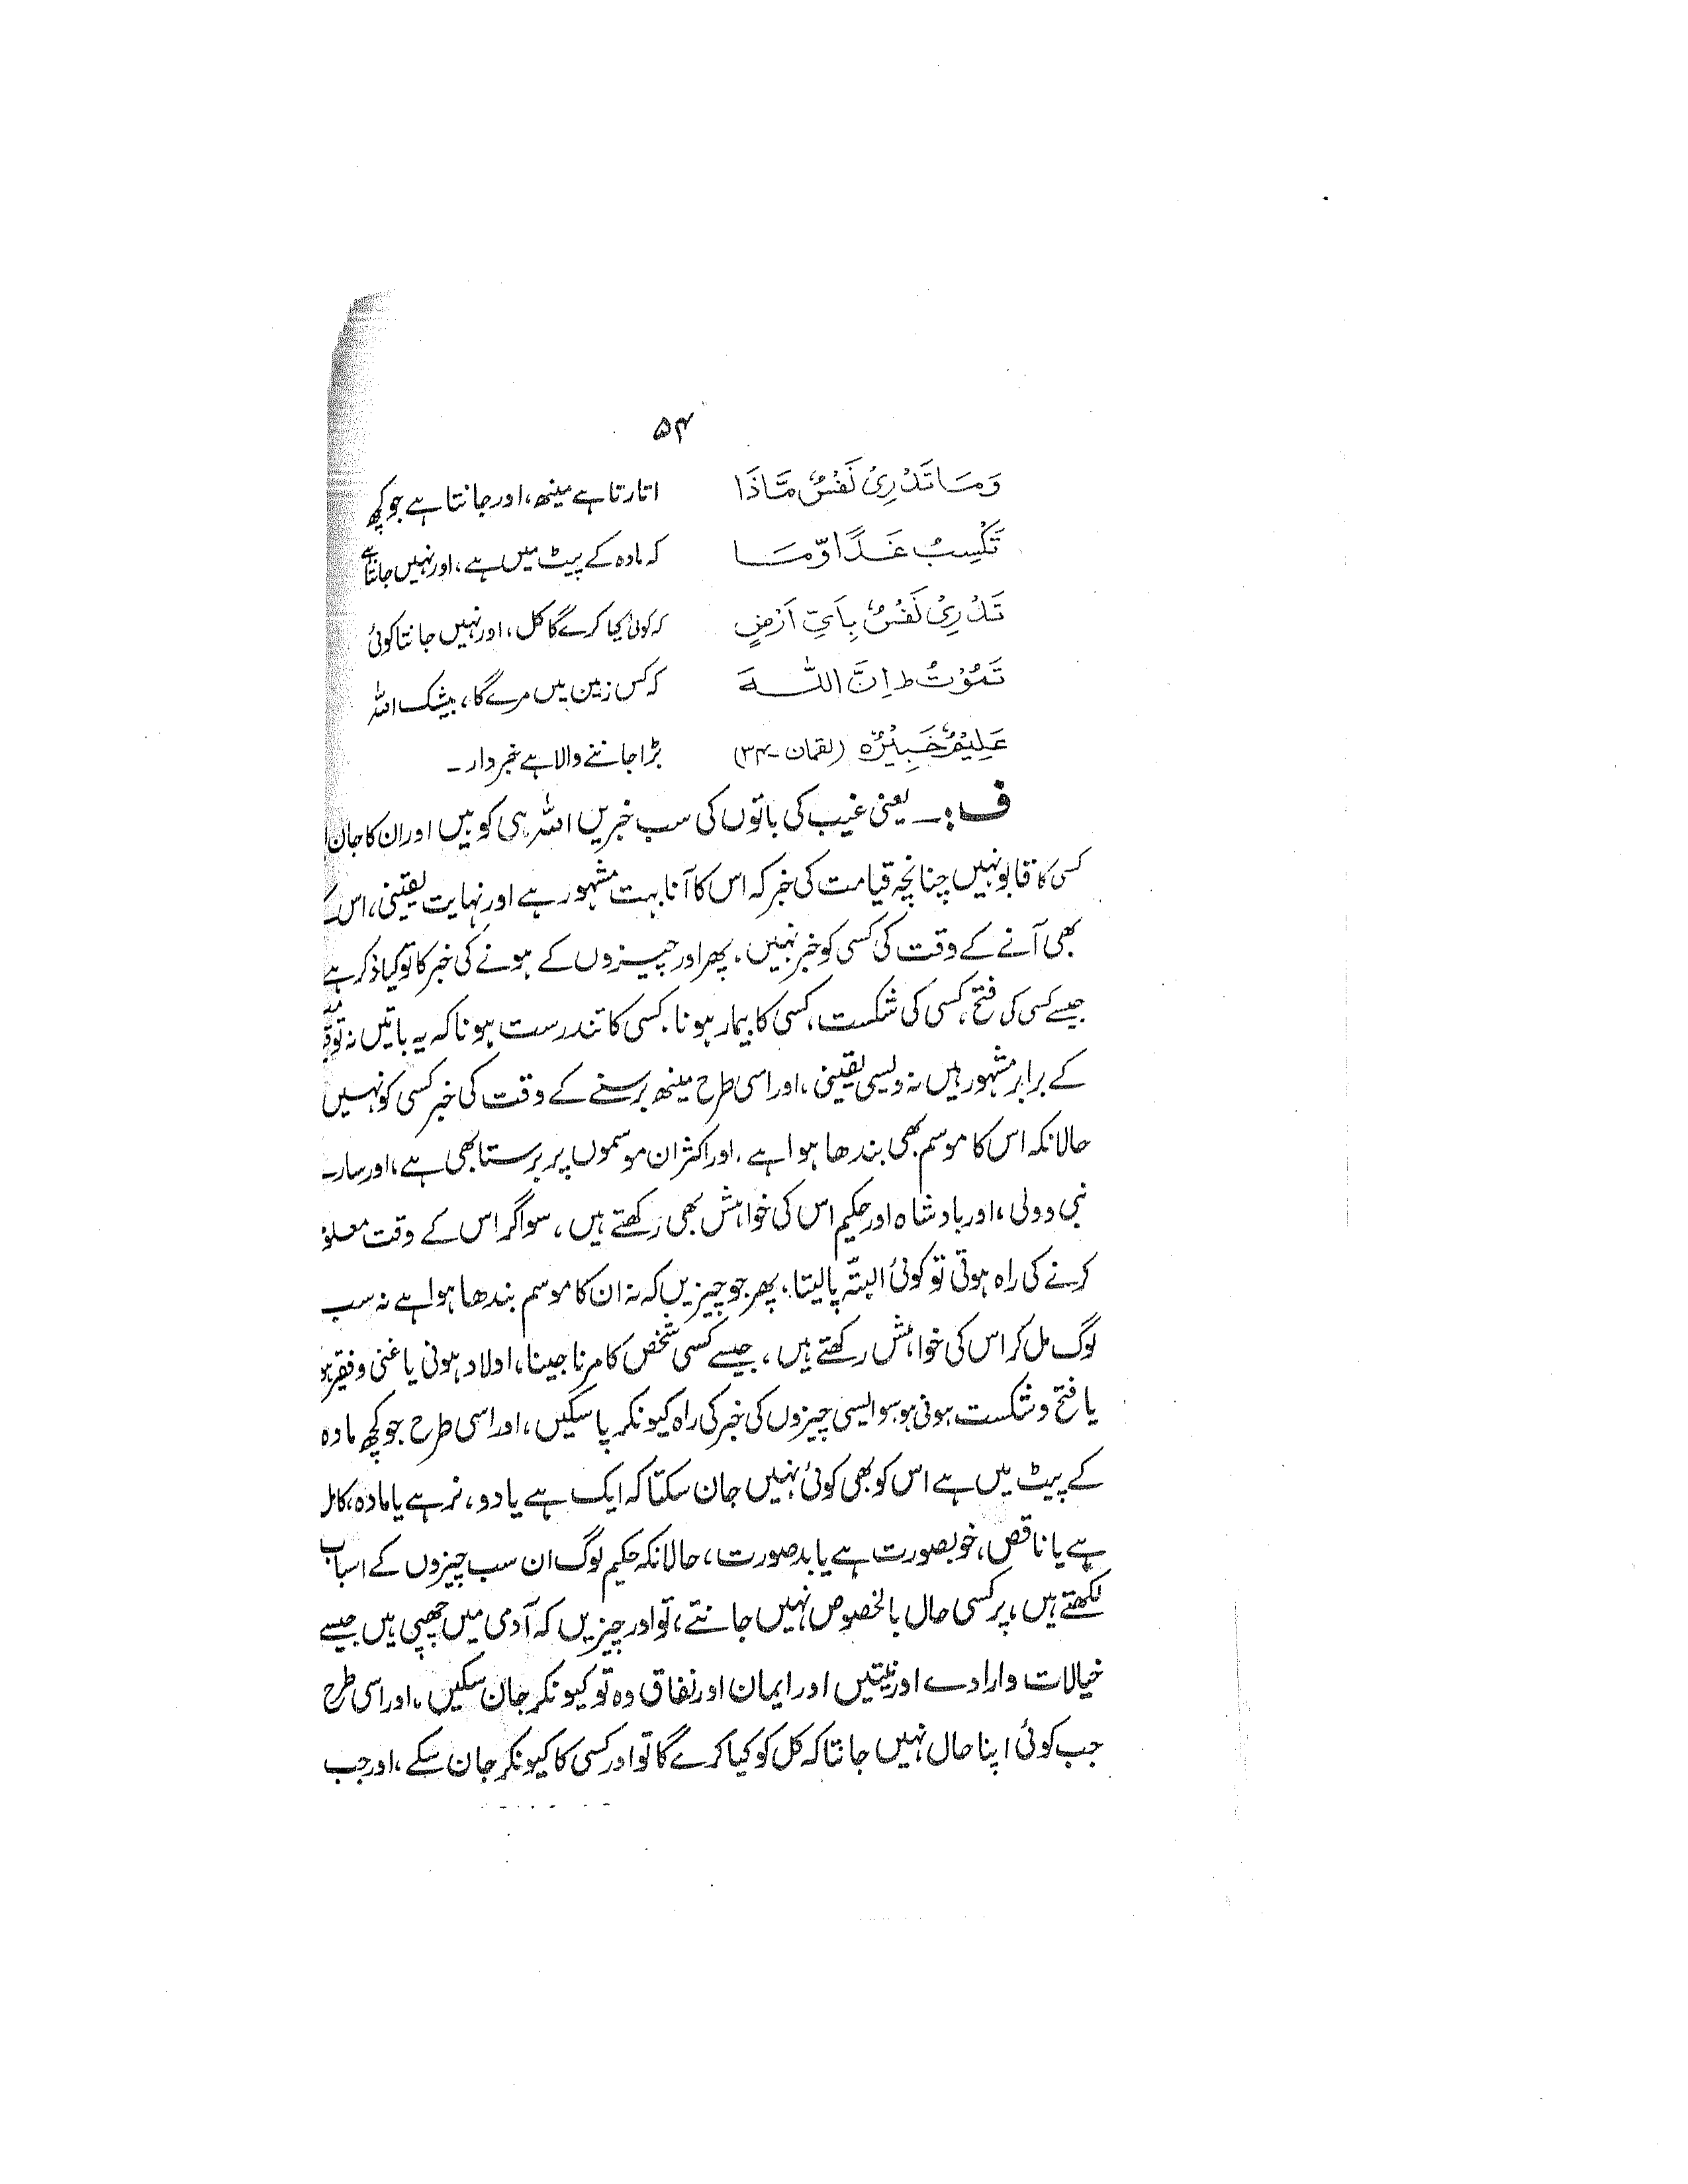 ۵۴
وَمَا تَدْرِیْ نَفْسٌ مَّاذَا
تَکْسِبُ غَدًا وَّمَا
تَدْرِیْ نَفْسٌ بِاَیِّ اَرْضٍ
تَمُوْتُ ط اِنَّ اللہَ
عَلِیْمٌ خَبِیْرٌ ہ (لقمان ۔ ۳۴)
اتارتا ہے مینھ، اور جانتا ہے جو کچھ
کہ مادہ کے پیٹ میں ہے، اور نہیں جانتا ہے
کہ کوئی کیا کرے گا کل، اور نہیں جانتا کوئی
کہ کس زمین میں مرے گا، بیشک اللہ
بڑا جاننے والا ہے خبردار ۔
ف :۔ یعنی غیب کی باتوں کی سب خبریں اللہ ہی کو ہیں اور ان کا جان
کسی کا قابو نہیں چنانچہ قیامت کی خبر کہ اس کا آنا بہت مشہور ہے اور نہایت یقینی، اس
بھی آنے کے وقت کی کسی کو خبر نہیں، پھر اور چیزوں کے ہونے کی خبر کا تو کیا ذکر ہے
جیسے کسی کی فتح، کسی کی شکست، کسی کا بیمار ہونا، کسی کا تندرست ہونا کہ یہ باتیں نہ تو
کے برابر مشہور ہیں نہ ویسی یقینی، اور اسی طرح مینھ برسنے کے وقت کی خبر کسی کو نہیں
حالانکہ اس کا موسم بھی بندھا ہوا ہے، اور اکثر ان موسموں پر برستا بھی ہے، اور سارے
نبی و ولی، اور بادشاہ اور حکیم اس کی خواہش بھی رکھتے ہیں، سو اگر اس کے وقت معلو
کرنے کی راہ ہوتی تو کوئی البتہ پا لیتا، پھر جو چیزیں کہ نہ ان کا موسم بندھا ہوا ہے نہ سب
لوگ مل کر اس کی خواہش رکھتے ہیں، جیسے کسی شخص کا مرنا جینا، اولاد ہونی یا غنی و فقیر ہو
یا فتح و شکست ہونی ہو سو ایسی چیزوں کی خبر کی راہ کیونکر پا سکیں، اور اسی طرح جو کچھ مادہ
کے پیٹ میں ہے اس کو بھی کوئی نہیں جان سکتا کہ ایک ہے یا دو، نر ہے یا مادہ، کامل
ہے یا ناقص، خوبصورت ہے یا بدصورت، حالانکہ حکیم لوگ ان سب چیزوں کے اسباب
لکھتے ہیں، پر کسی حال بالخصوص نہیں جانتے، تو اور چیزیں کہ آدمی میں چھپی ہیں جیسے
خیالات و ارادے اور نیتیں اور ایمان اور نفاق وہ تو کیونکر جان سکیں، اور اسی طرح
جب کوئی اپنا حال نہیں جانتا کہ کل کو کیا کرے گا تو اور کسی کا کیونکر جان سکے، اور جب